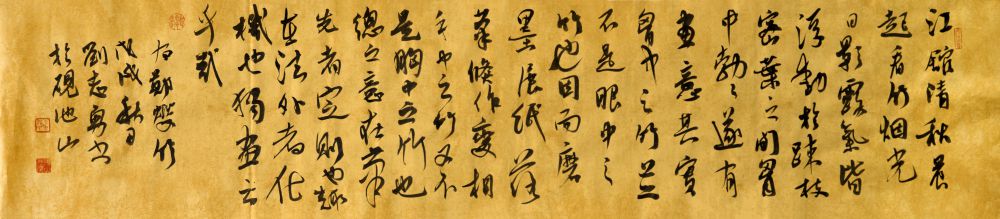 江館清秋晨
起看竹烟光
日影露氣皆
浮動於疎枝
密葉之間胷
中勃〻遂有
畫意其實
胷中之竹並
不是眼中之
竹也因而磨
墨展紙落
筆倏作變相
手中之竹又不
是胸中之竹也
總之意在筆
先者定則也趣
在法外者化
機也獨畫云
乎哉
右鄭燮竹
戊戌秋日
劉志勇書
於硯池山